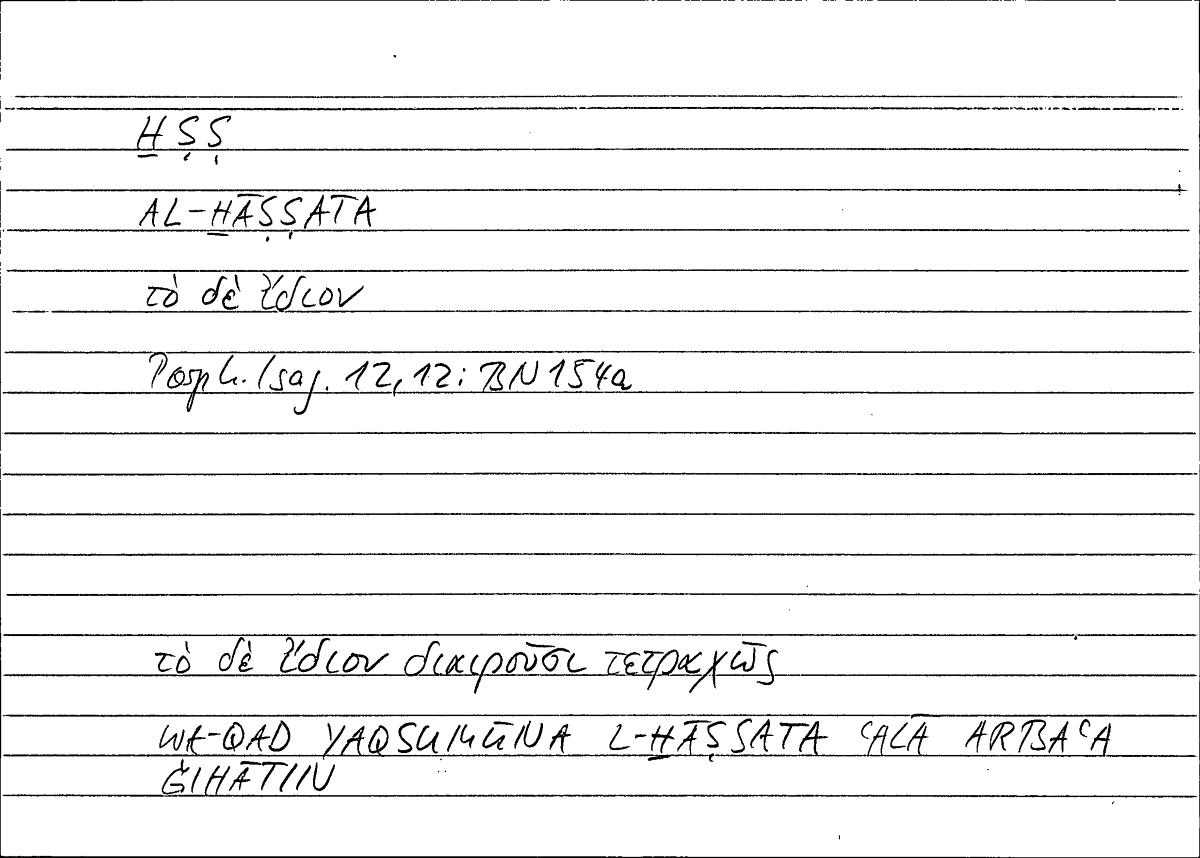 ḪṢṢ
AL-ḪĀṢṢATA
τὸ δὲ ἴδιον
Porph. Isag. 12,12: BN 154a
τὸ δὲ ἴδιον διαιροῦσι τετραχῶς
WA-QAD YAQSUMŪNA L-ḪĀṢṢATA ʿALĀ ARBAʿA
ĠIHĀTIIN